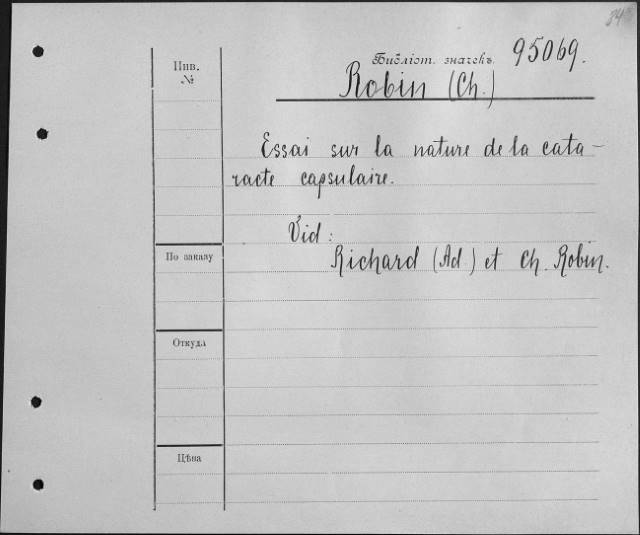 84
Библіот. значекъ. 95069.
Инв.
№
Robin (Ch.)
Essai sur la nature de la cata-
racte capsulaire.
Vid:
По заказу
Richard (Ad.) et Ch. Robin.
Откуда
Цѣна